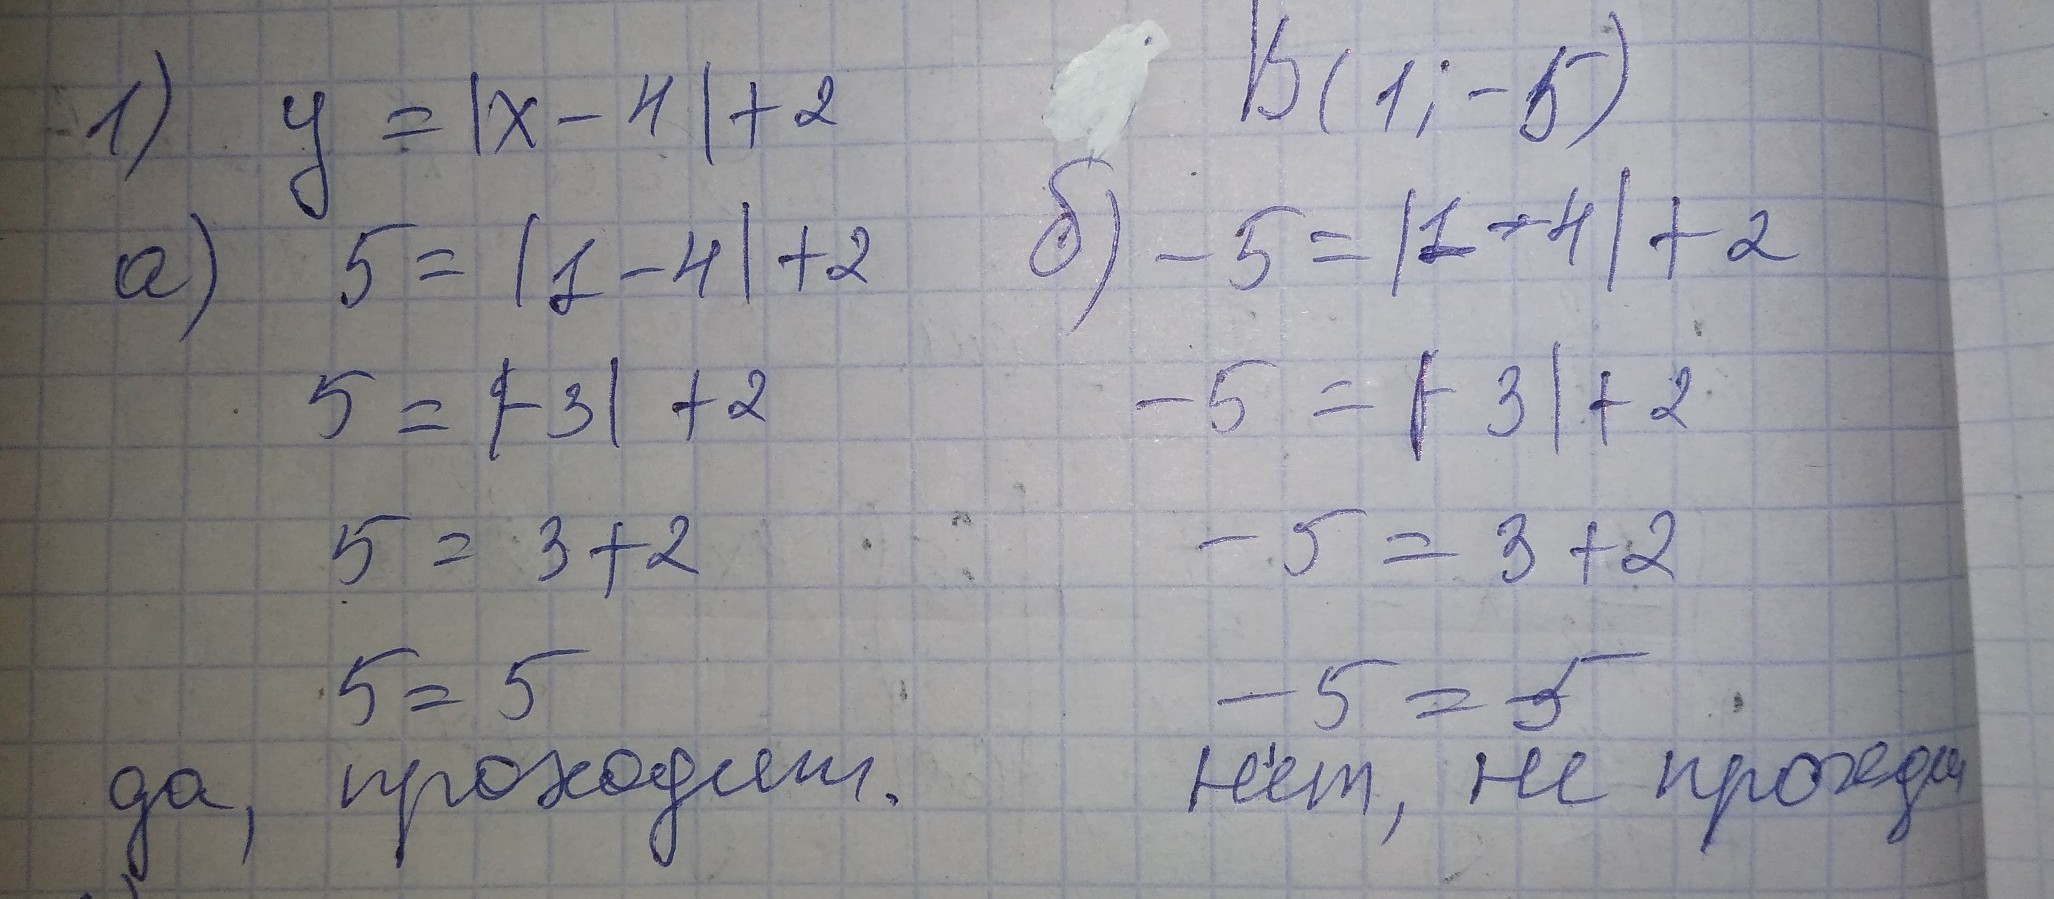 1) y = |x - 4| + 2
В(1; -5)
а) 5 = |1 - 4| + 2
5 = |-3| + 2
5 = 3 + 2
5 = 5
да, проходит.
б) -5 = |1 - 4| + 2
-5 = |-3| + 2
-5 = 3 + 2
-5 = 5
нет, не